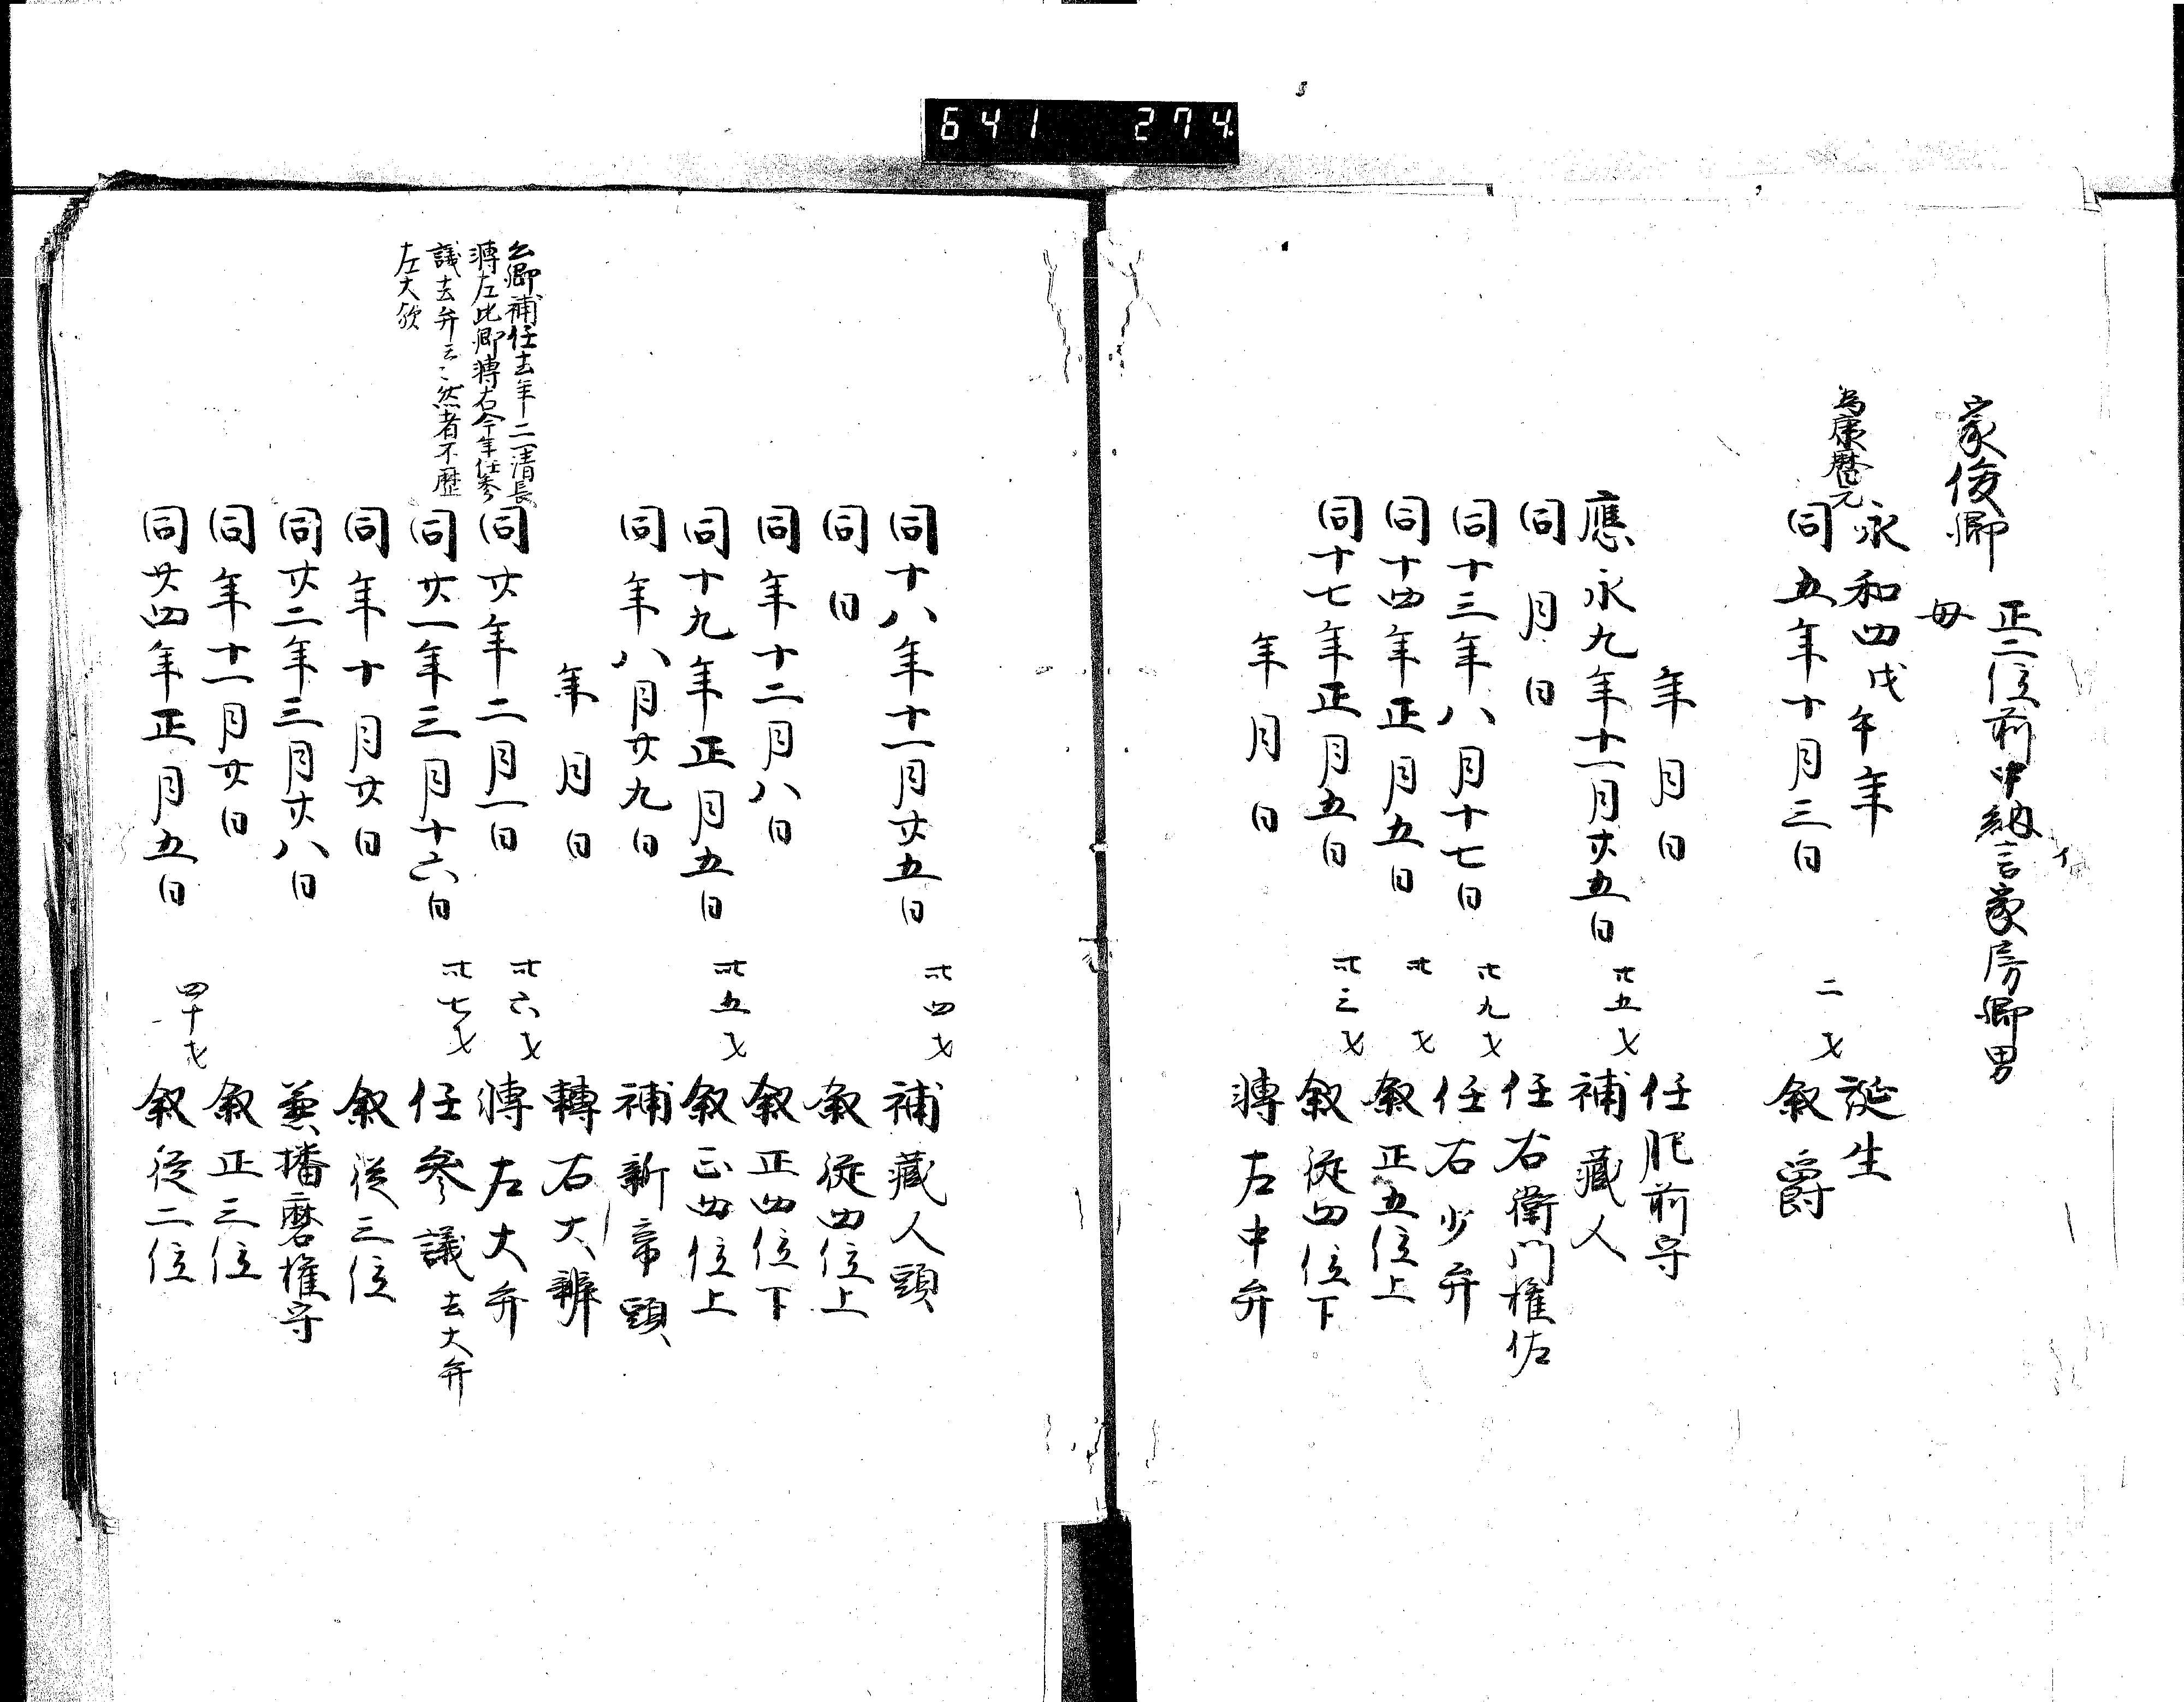 641 274
家俊卿 正二位前中納言家房卿男
母
永和四戊午年 誕生
為康暦元
同五年十月三日 二才 叙爵
年月日 任肥前守
應永九年十一月廿五日 廿五才 補藏人
同月日 任右衛門権佐
同十三年八月十七日 廿九才 任右少弁
同十四年正月五日 卅才 叙正五位上
同十七年正月五日 卅三才 叙従四位下
年月日 轉左中弁
同十八年十一月廿五日 卅四才 補藏人頭
同日 叙従四位上
同年十二月八日 叙正四位下
同十九年正月五日 卅五才 叙正四位上
同年八月廿九日 補新帝頭
年月日 轉右大辨
同廿年二月一日 卅六才 轉左大弁
公卿補任去年二一清長
轉左此卿轉右今年任参
議去弁云々然者不歴
左大欤
同廿一年三月十六日 卅七才 任參議 去大弁
同年十月廿日 叙従三位
同廿二年三月廿八日 兼播磨権守
同年十一月廿日 叙正三位
同廿四年正月五日 四十才 叙従二位